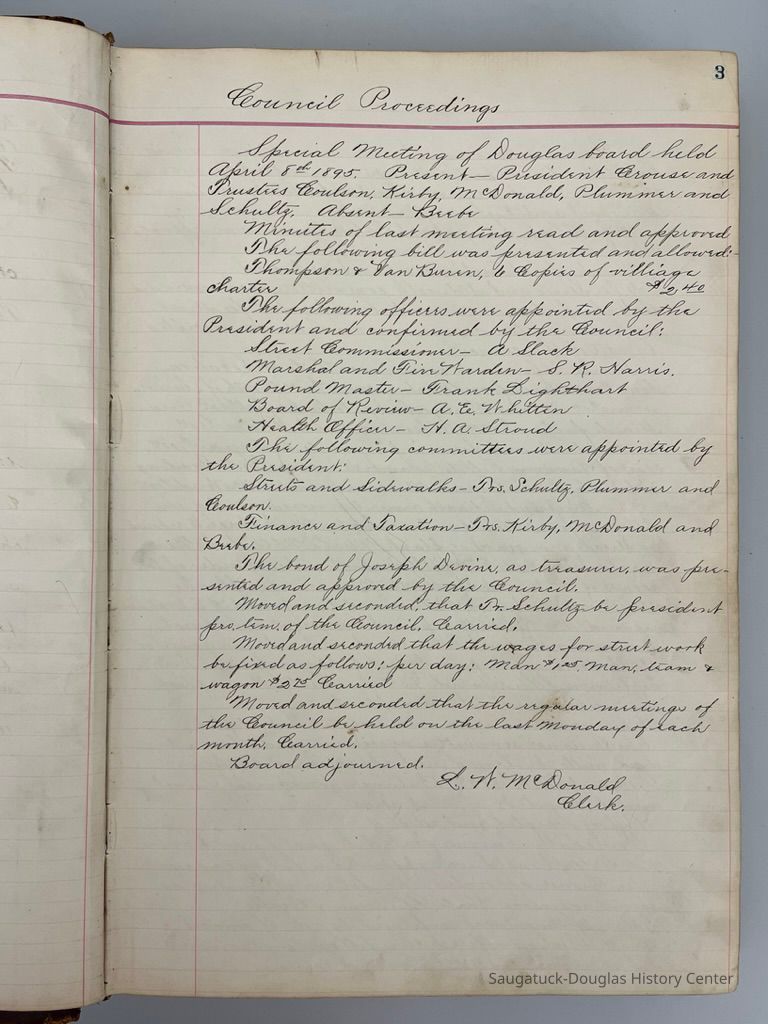 3
Council Proceedings
Special Meeting of Douglas board held
April 8th 1895. Present— President Crouse and
Trustees Coulson, Kirby, McDonald, Plummer and
Schultz. Absent— Beebe
Minutes of last meeting read and approved
The following bill was presented and allowed:-
Thompson & Van Buren, 6 Copies of villiage
charter $2.40
The following officers were appointed by the
President and confirmed by the Council:
Street Commissioner— A Slack
Marshal and Fire Warden— S. R. Harris.
Pound Master— Frank Lighthart
Board of Review— A. E. Whitten
Health Officer— H. A. Stroud
The following committees were appointed by
the President:
Streets and Sidewalks— Trs. Schultz, Plummer and
Coulson.
Finance and Taxation— Trs. Kirby, McDonald and
Beebe.
The bond of Joseph Devine, as treasurer, was pre-
sented and approved by the Council.
Moved and seconded, that Tr. Schultz be president
pro. tem. of the Council. Carried.
Moved and seconded that the wages for street work
be fixed as follows: per day: Man $1.25. Man, team &
wagon $2.75 Carried
Moved and seconded that the regular meetings of
the Council be held on the last Monday of each
month. Carried.
Board adjourned.
L. W. McDonald
Clerk.
Saugatuck-Douglas History Center